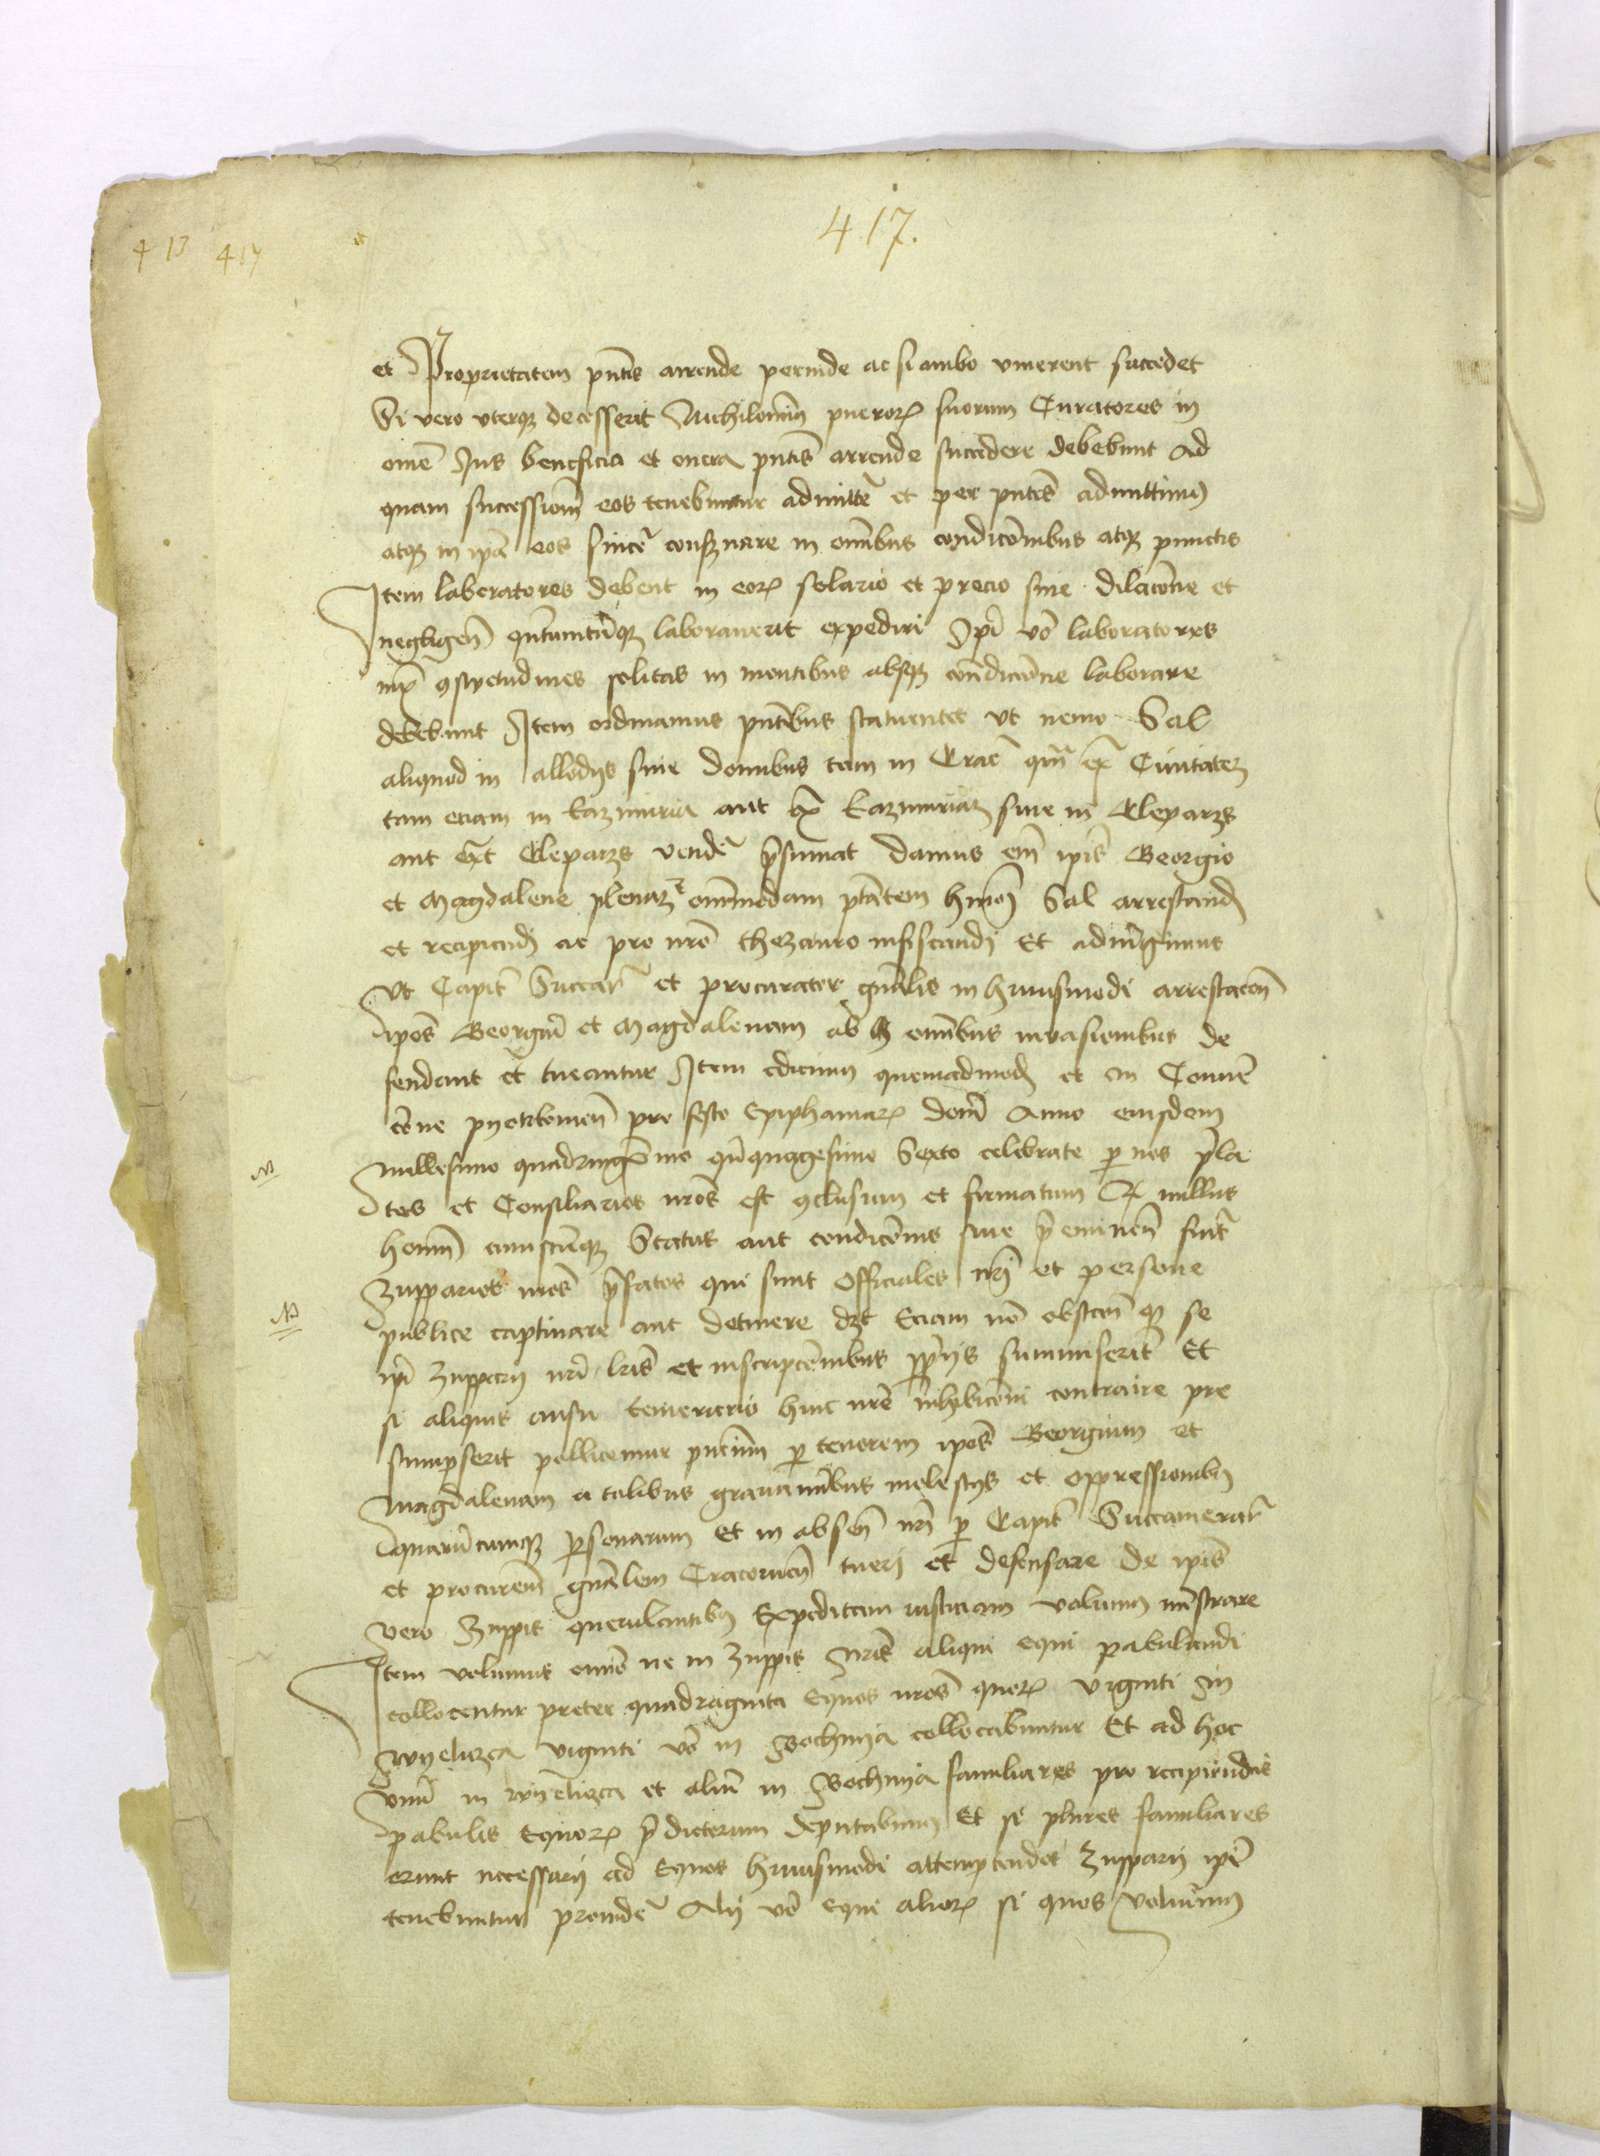 417.
413 417
et Proprietatem pntis arrende perinde ac si ambo viuerent succedet
Si vero vterque decesserit Nichilominus pueror suorum Curatores in
omne Jus beneficia et onera pntis arrende succedere debebunt Ad
quam successionem eos tenebimur admitte et per pntes admittimus
atque in ipa eos sincere conservare in omnibus condicionibus atque punctis
Item laboratores debent in eor solario et precio sine dilacione et
negligen quntumcunque laborauerit expediri Ipi vero laboratores
iux consuetudines solitas in montibus absque condicione laborare
debebunt Item ordinamus pntibus statuentes vt nemo Sal
aliquod in allodijs siue domibus tam in Crac qum ex Ciuitatem
tam eciam in kazimiria aut ex kazimiriam siue in Cleparz
aut ext Cleparz vende presumat damus eni ipis Georgio
et Magdalene plenam et omnimodam ptatem hmoi Sal arrestandi
et recipiendi ac pro nro thezauro infiscandi Et adiungimus
Vt Capit Succar et procurator gnalis in huiusmodi arrestacon
ipos Georgium et Magdalenam ab omnibus inuasionibus de
fendant et tueantur Item edicimus quemadmodum et in Conuen
cione pyotrkouien pro festo Epiphaniar domi Anno eiusdem
N
millesimo quadringmo quinquagesimo Sexto celebrate per nos prela
tos et Consiliarios nros est conclusum et firmatum Quod nullus
homi cuiuscunque Status aut condicionis siue preeminen fuit
N
Zupparios nros prefatos qui sunt officiales nri et persone
publice captiuare aut detinere debet Eciam non obstan quod se
ipi Zupparij nri lris et inscripcionibus proprijs summiserit Et
si aliquis ausu temerario huic nre inhibicioni contraire pre
sumpserit pollicemur pntium per tenorem ipos Georgium et
Magdalenam a talibus grauaminibus molestijs et oppressionibus
quarumcumque personarum Et in absen nri per Capit Succamerar
et procurem gnalem Cracouien tueri et defensare de ipis
vero Zuppis querulantibus Expeditam iusticiam volumus ministrare
Item volumus omnino ne in Zuppis nris aliqui equi pabulandi
collocentur preter quadraginta Equos nros quor viginti in
wyelizca viginti vero in Bochnya collocabuntur Et ad hoc
vnum in wyelizca et alium in Bochnya familiares pro recipiendis
pabulis Equor predictorum deputabimus Et si plures familiares
erunt necessarij ad Equos huiusmodi attemptandos Zupparij ipi
tenebuntur prouide Alij vero equi alior si quos voluerimus